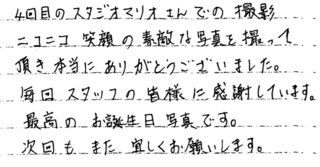 4回目のスタジオマリオさんでの撮影
ニコニコ笑顔の素敵な写真を撮って
頂き本当にありがとうございました。
毎回スタッフの皆様に感謝しています。
最高のお誕生日写真です。
次回もまた宜しくお願いします。